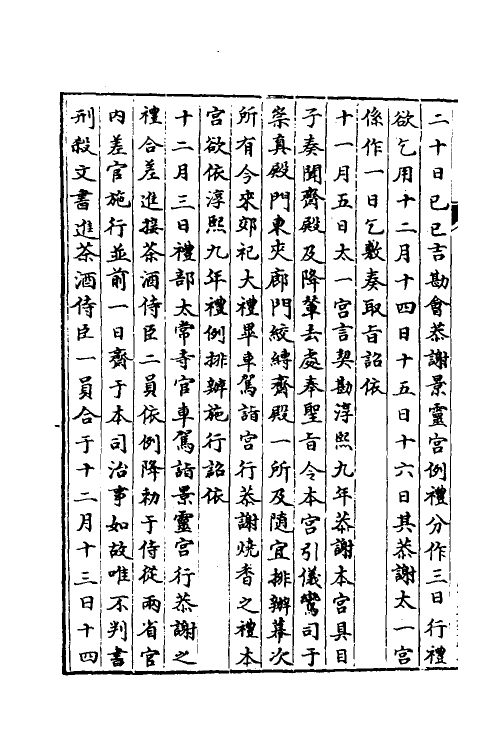 二十日己巳言勘會恭謝景靈宮例禮分作三日行禮
欲乞用十二月十四日十五日十六日其恭謝太一宮
係作一日乞敷奏取旨詔依
十一月五日太一宮言契勘淳熙九年恭謝本宮具目
子奏聞齋殿及降輦去處奉聖旨令本宮引儀鸞司于
崇真殿門東夾廊門絞縛齋殿一所及隨宜排辦幕次
所有今來郊祀大禮畢車駕詣宮行恭謝燒香之禮本
宮欲依淳熙九年禮例排辦施行詔依
十二月三日禮部太常寺官車駕詣景靈宮行恭謝之
禮合差進接茶酒侍臣二員依例降勅于侍從兩省官
內差官施行並前一日齋于本司治事如故唯不判書
刑殺文書進茶酒侍臣一員合于十二月十三日十四